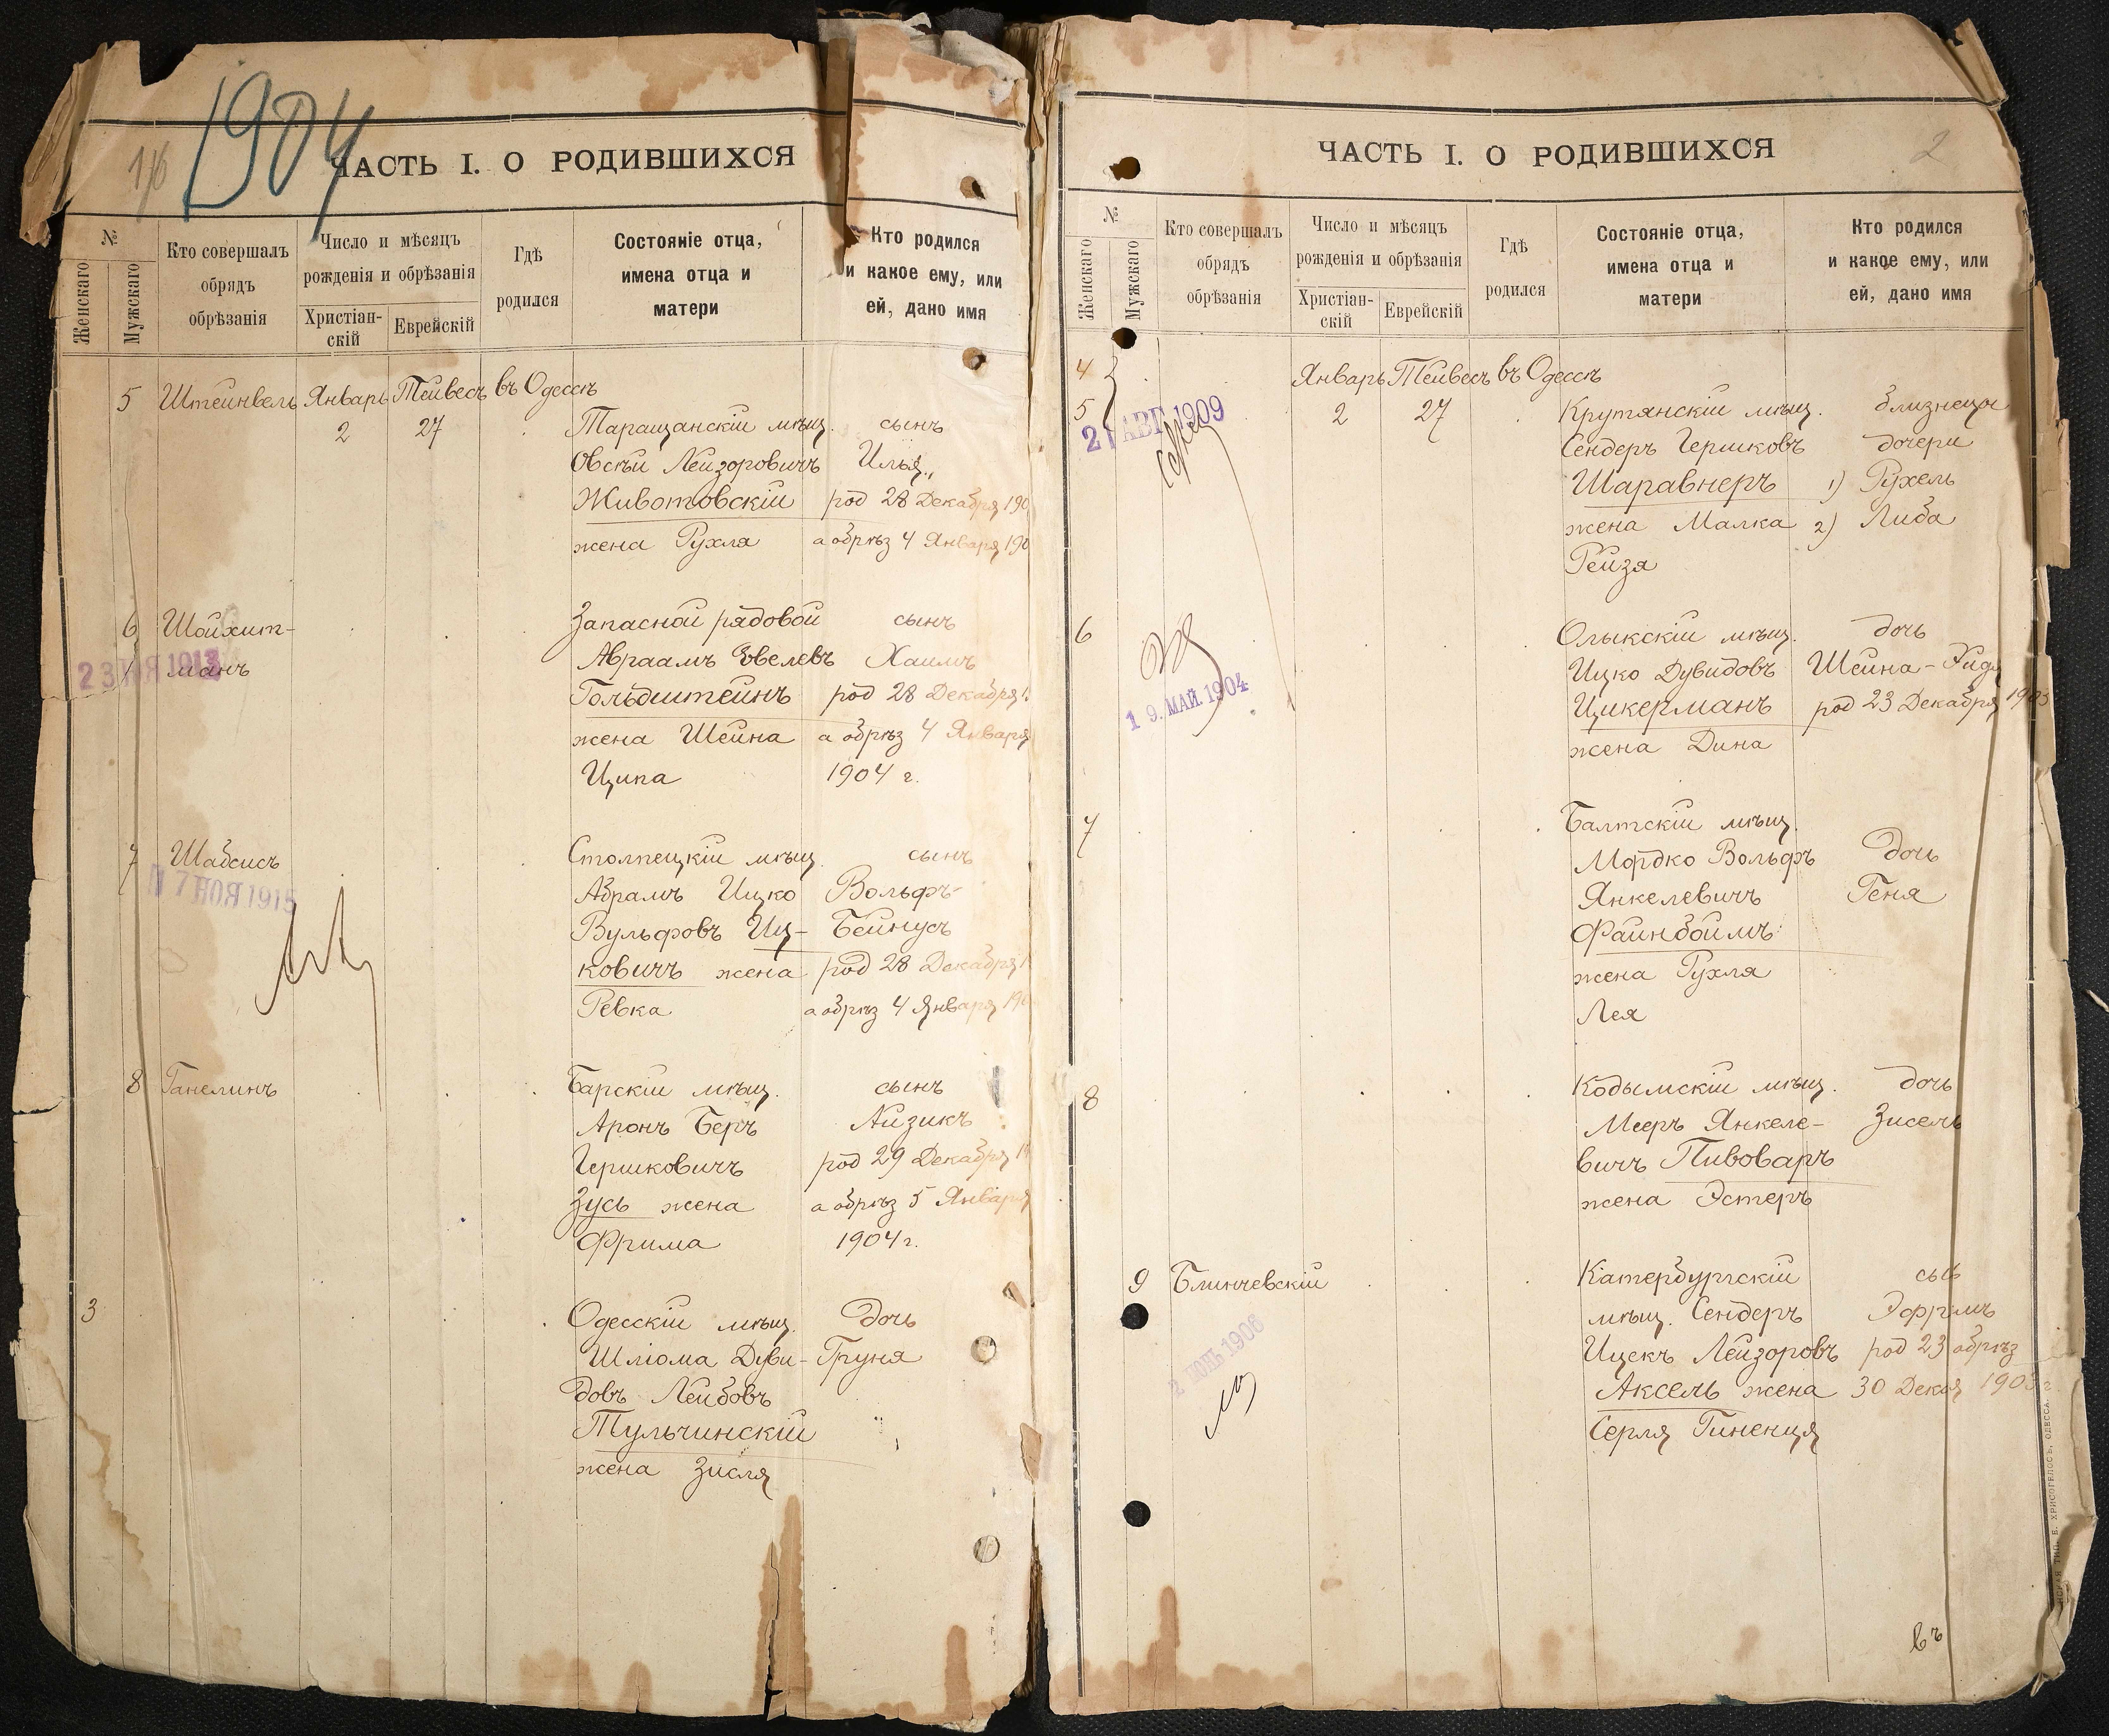 1904
ЧАСТЬ I. О РОДИВШИХСЯ
№
Женскаго
Мужскаго
Кто совершалъ
обрядъ
обрѣзанія
Число и мѣсяцъ
рожденія и обрѣзанія
Христіан-
скій
Еврейскій
Гдѣ
родился
Состояніе отца,
имена отца и
матери
Кто родился
и какое ему, или
ей, дано имя
5 Штейнвель Январь Тейвесъ въ Одессѣ
2 27 Таращанскій мѣщ. сынъ
Овсѣй Лейзоровичъ Илья
Животовскій род 28 Декабря 190
жена Рухля а обрѣз 4 Января 190
6 Шойхит- Запасной рядовой сынъ
манъ Авраамъ Евелевъ Хаимъ
23 1913
Гольдштейнъ род 28 Декабря 1
жена Шейна а обрѣз 4 Января
Ципа 1904 г.
7 Шабсисъ Столпецкій мѣщ. сынъ
17 НОЯ 1915
Абрамъ Ицко Вольфъ-
Вульфовъ Иц- Бейнусъ
ковичъ жена род 28 Декабря 1
Ревка а обрѣз 4 Января 190
8 Ганелинъ Барскій мѣщ. сынъ
Аронъ Беръ Айзикъ
Гершковичъ род 29 Декабря 19
Зусь жена а обрѣз 5 Января
Фрима 1904 г.
3 Одесскій мѣщ. Дочь
Шлiома Дуви- Груня
довъ Лейбовъ
Тульчинскій
жена Зисля
2
ЧАСТЬ I. О РОДИВШИХСЯ
№
Женскаго
Мужскаго
Кто совершалъ
обрядъ
обрѣзанія
Число и мѣсяцъ
рожденія и обрѣзанія
Христіан-
скій
Еврейскій
Гдѣ
родился
Состояніе отца,
имена отца и
матери
Кто родился
и какое ему, или
ей, дано имя
4 Январь Тейвесъ въ Одессѣ
5 2 27 Крутянскій мѣщ. близнецы
21 АВГ 1909
Сендеръ Гершковъ дочери
Шаравнеръ 1) Рухель
жена Малка 2) Либа
Рейзя
6 Олыкскій мѣщ. дочь
Ицко Дувидовъ Шейна-
19. МАЙ. 1904
Цикерманъ род 23 Декабря 1903
жена Дина
7 Балтскій мѣщ.
Мордко Вольфъ Дочь
Янкелевичъ Геня
Файнбоймъ
жена Рухля
Лея
8 Кодымскій мѣщ. дочь
Мееръ Янкеле- Зисель
вичъ Пивоваръ
жена Эстеръ
9 Блинчевскій Кіатербургскій сынъ
мѣщ. Сендеръ Эфримъ
2 ИЮНЬ 1906
Ицекъ Лейзоровъ род 23 обрѣз
Аксель жена 30 Декаб 1903 г.
Серля Гиненця
въ
Е. ХРИСОГЕЛОСЪ, ОДЕССА.